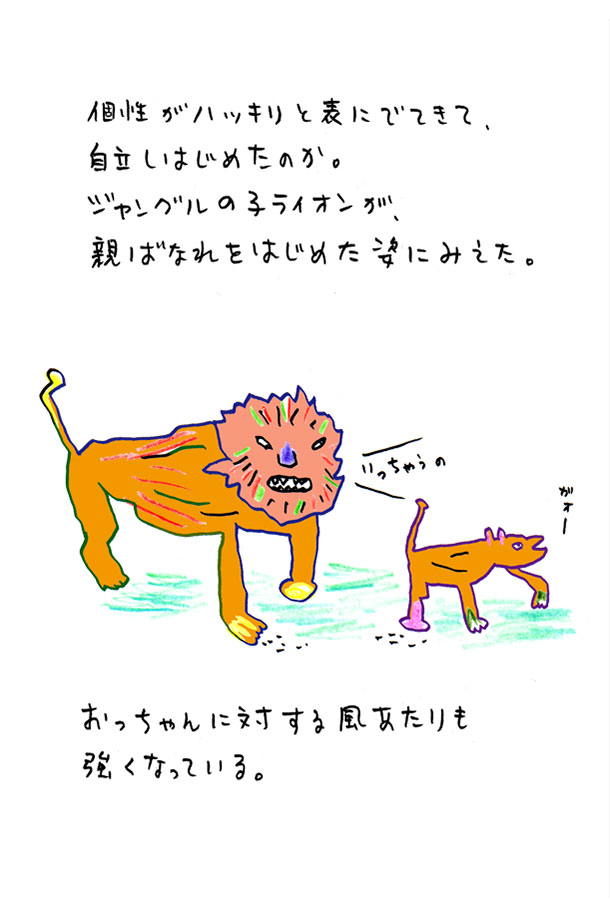 個性がハッキリと表にでてきて、
自立しはじめたのか。
ジャングルの子ライオンが、
親ばなれをはじめた姿にみえた。
いっちゃうの
がオー
おっちゃんに対する風あたりも
強くなっている。